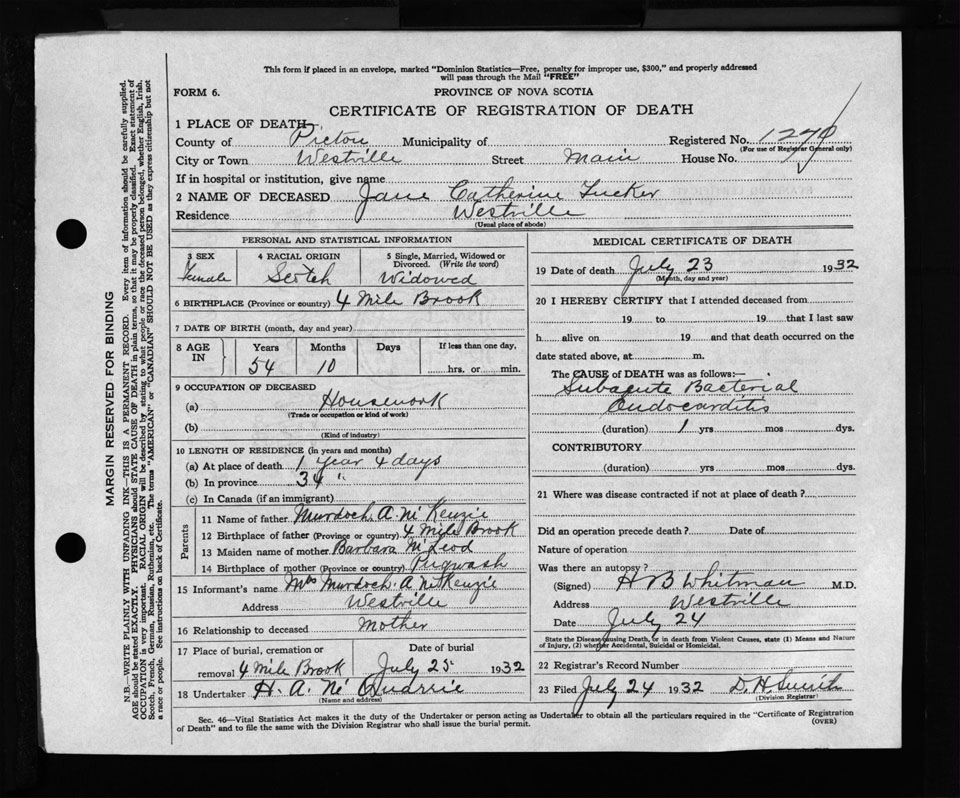 This form if placed in an envelope, marked "Dominion Statistics—Free, penalty for improper use, $300," and properly addressed
will pass through the Mail "FREE"
FORM 6.
PROVINCE OF NOVA SCOTIA
CERTIFICATE OF REGISTRATION OF DEATH
1 PLACE OF DEATH
County of Pictou Municipality of Registered No. 1270
(For use of Registrar General only)
City or Town Westville Street Main House No.
If in hospital or institution, give name
2 NAME OF DECEASED Jane Catherine Tucker
Residence Westville
(Usual place of abode)
PERSONAL AND STATISTICAL INFORMATION
3 SEX 4 RACIAL ORIGIN 5 Single, Married, Widowed or
Divorced. (Write the word)
Female Scotch Widowed
6 BIRTHPLACE (Province or country) 4 Mile Brook
7 DATE OF BIRTH (month, day and year)
8 AGE IN Years Months Days If less than one day,
54 10 hrs. or min.
9 OCCUPATION OF DECEASED
(a) Housework
(Trade or occupation or kind of work)
(b)
(Kind of industry)
10 LENGTH OF RESIDENCE (in years and months)
(a) At place of death 1 year 4 days
(b) In province 34 "
(c) In Canada (if an immigrant)
Parents
11 Name of father Murdoch A. Mc Kenzie
12 Birthplace of father (Province or country) 4 Mile Brook
13 Maiden name of mother Barbara McLeod
14 Birthplace of mother (Province or country) Pugwash
15 Informant's name Mrs Murdoch A. McKenzie
Address Westville
16 Relationship to deceased Mother
17 Place of burial, cremation or Date of burial
removal 4 Mile Brook July 25 1932
18 Undertaker H. A. Mc Quarrie
(Name and address)
MEDICAL CERTIFICATE OF DEATH
19 Date of death July 23 1932
(Month, day and year)
20 I HEREBY CERTIFY that I attended deceased from
19 to 19 that I last saw
h alive on 19 and that death occurred on the
date stated above, at m.
The CAUSE of DEATH was as follows:—
Subacute Bacterial
Endocarditis
(duration) 1 yrs mos dys.
CONTRIBUTORY
(duration) yrs mos dys.
21 Where was disease contracted if not at place of death?
Did an operation precede death? Date of
Nature of operation
Was there an autopsy?
(Signed) H B Whitman M.D.
Address Westville
Date July 24
State the Disease causing Death, or in death from Violent Causes, state (1) Means and Nature
of Injury, (2) whether Accidental, Suicidal or Homicidal.
22 Registrar's Record Number
23 Filed July 24 1932 D. H. Smith
(Division Registrar)
Sec. 46—Vital Statistics Act makes it the duty of the Undertaker or person acting as Undertaker to obtain all the particulars required in the "Certificate of Registration
of Death" and to file the same with the Division Registrar who shall issue the burial permit.
(OVER)
MARGIN RESERVED FOR BINDING
N.B.—WRITE PLAINLY WITH UNFADING INK—THIS IS A PERMANENT RECORD. Every item of information should be carefully supplied.
AGE should be stated EXACTLY. PHYSICIANS should STATE CAUSE OF DEATH in plain terms, so that it may be properly classified. Exact statement of
OCCUPATION is very important. RACIAL ORIGIN will be described by stating to what people or race the deceased person belonged, whether English, Irish,
Scotch, French, German, Russian, Ruthenian, etc. The terms "AMERICAN" or "CANADIAN" SHOULD NOT BE USED as they express citizenship but not
a race or people. See instructions on back of Certificate.